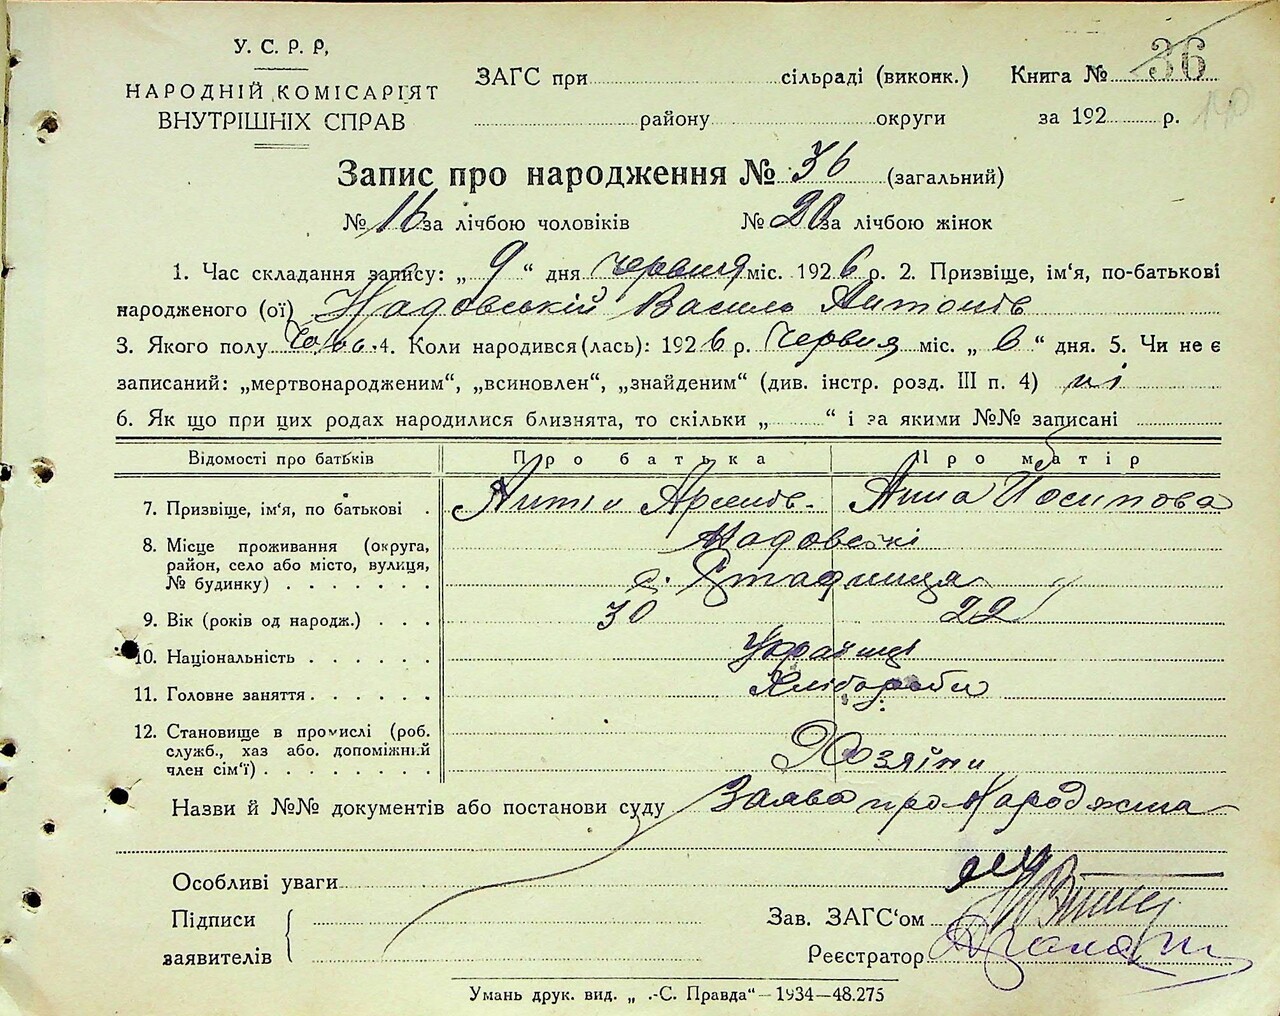 У. С. Р. Р,
НАРОДНІЙ КОМІСАРІЯТ
ВНУТРІШНІХ СПРАВ
ЗАГС при сільраді (виконк.) Книга № 36
району округи за 192 р. 140
Запис про народження № 36 (загальний)
№ 16 за лічбою чоловіків № 20 за лічбою жінок
1. Час складання запису: „ 9 “ дня червня міс. 1926 р. 2. Призвіще, ім'я, по-батькові
народженого (ої) Надовський Василь Антонів
3. Якого полу чол. 4. Коли народився(лась): 1926 р. Червня міс. „ 6 “ дня. 5. Чи не є
записаний: „мертвонародженим“, „всиновлен“, „знайденим“ (див. інстр. розд. III п. 4) ні
6. Як що при цих родах народилися близнята, то скільки „ “ і за якими №№ записані
Відомості про батьків Про батька Про матір
7. Призвіще, ім‘я, по батькові . Антін Арсенів. Анна Йосипова
Надовські
8. Місце проживання (округа,
район, село або місто, вулиця,
№ будинку) . . . . . . . с. Стадниця
9. Вік (років од народж.) . . . 30 22
10. Національність . . . . . . Українці
11. Головне заняття . . . . . . Хлібороби
12. Становище в промислі (роб.
служб., хаз або. допоміжний
член сім'ї) . . . . . . . . Хозяїни
Назви й №№ документів або постанови суду Заява про Народження
Особливі уваги
Підписи
заявителів
Зав. ЗАГС‘ом
Реєстратор
Умань друк. вид. „ .-С. Правда“ — 1934—48.275